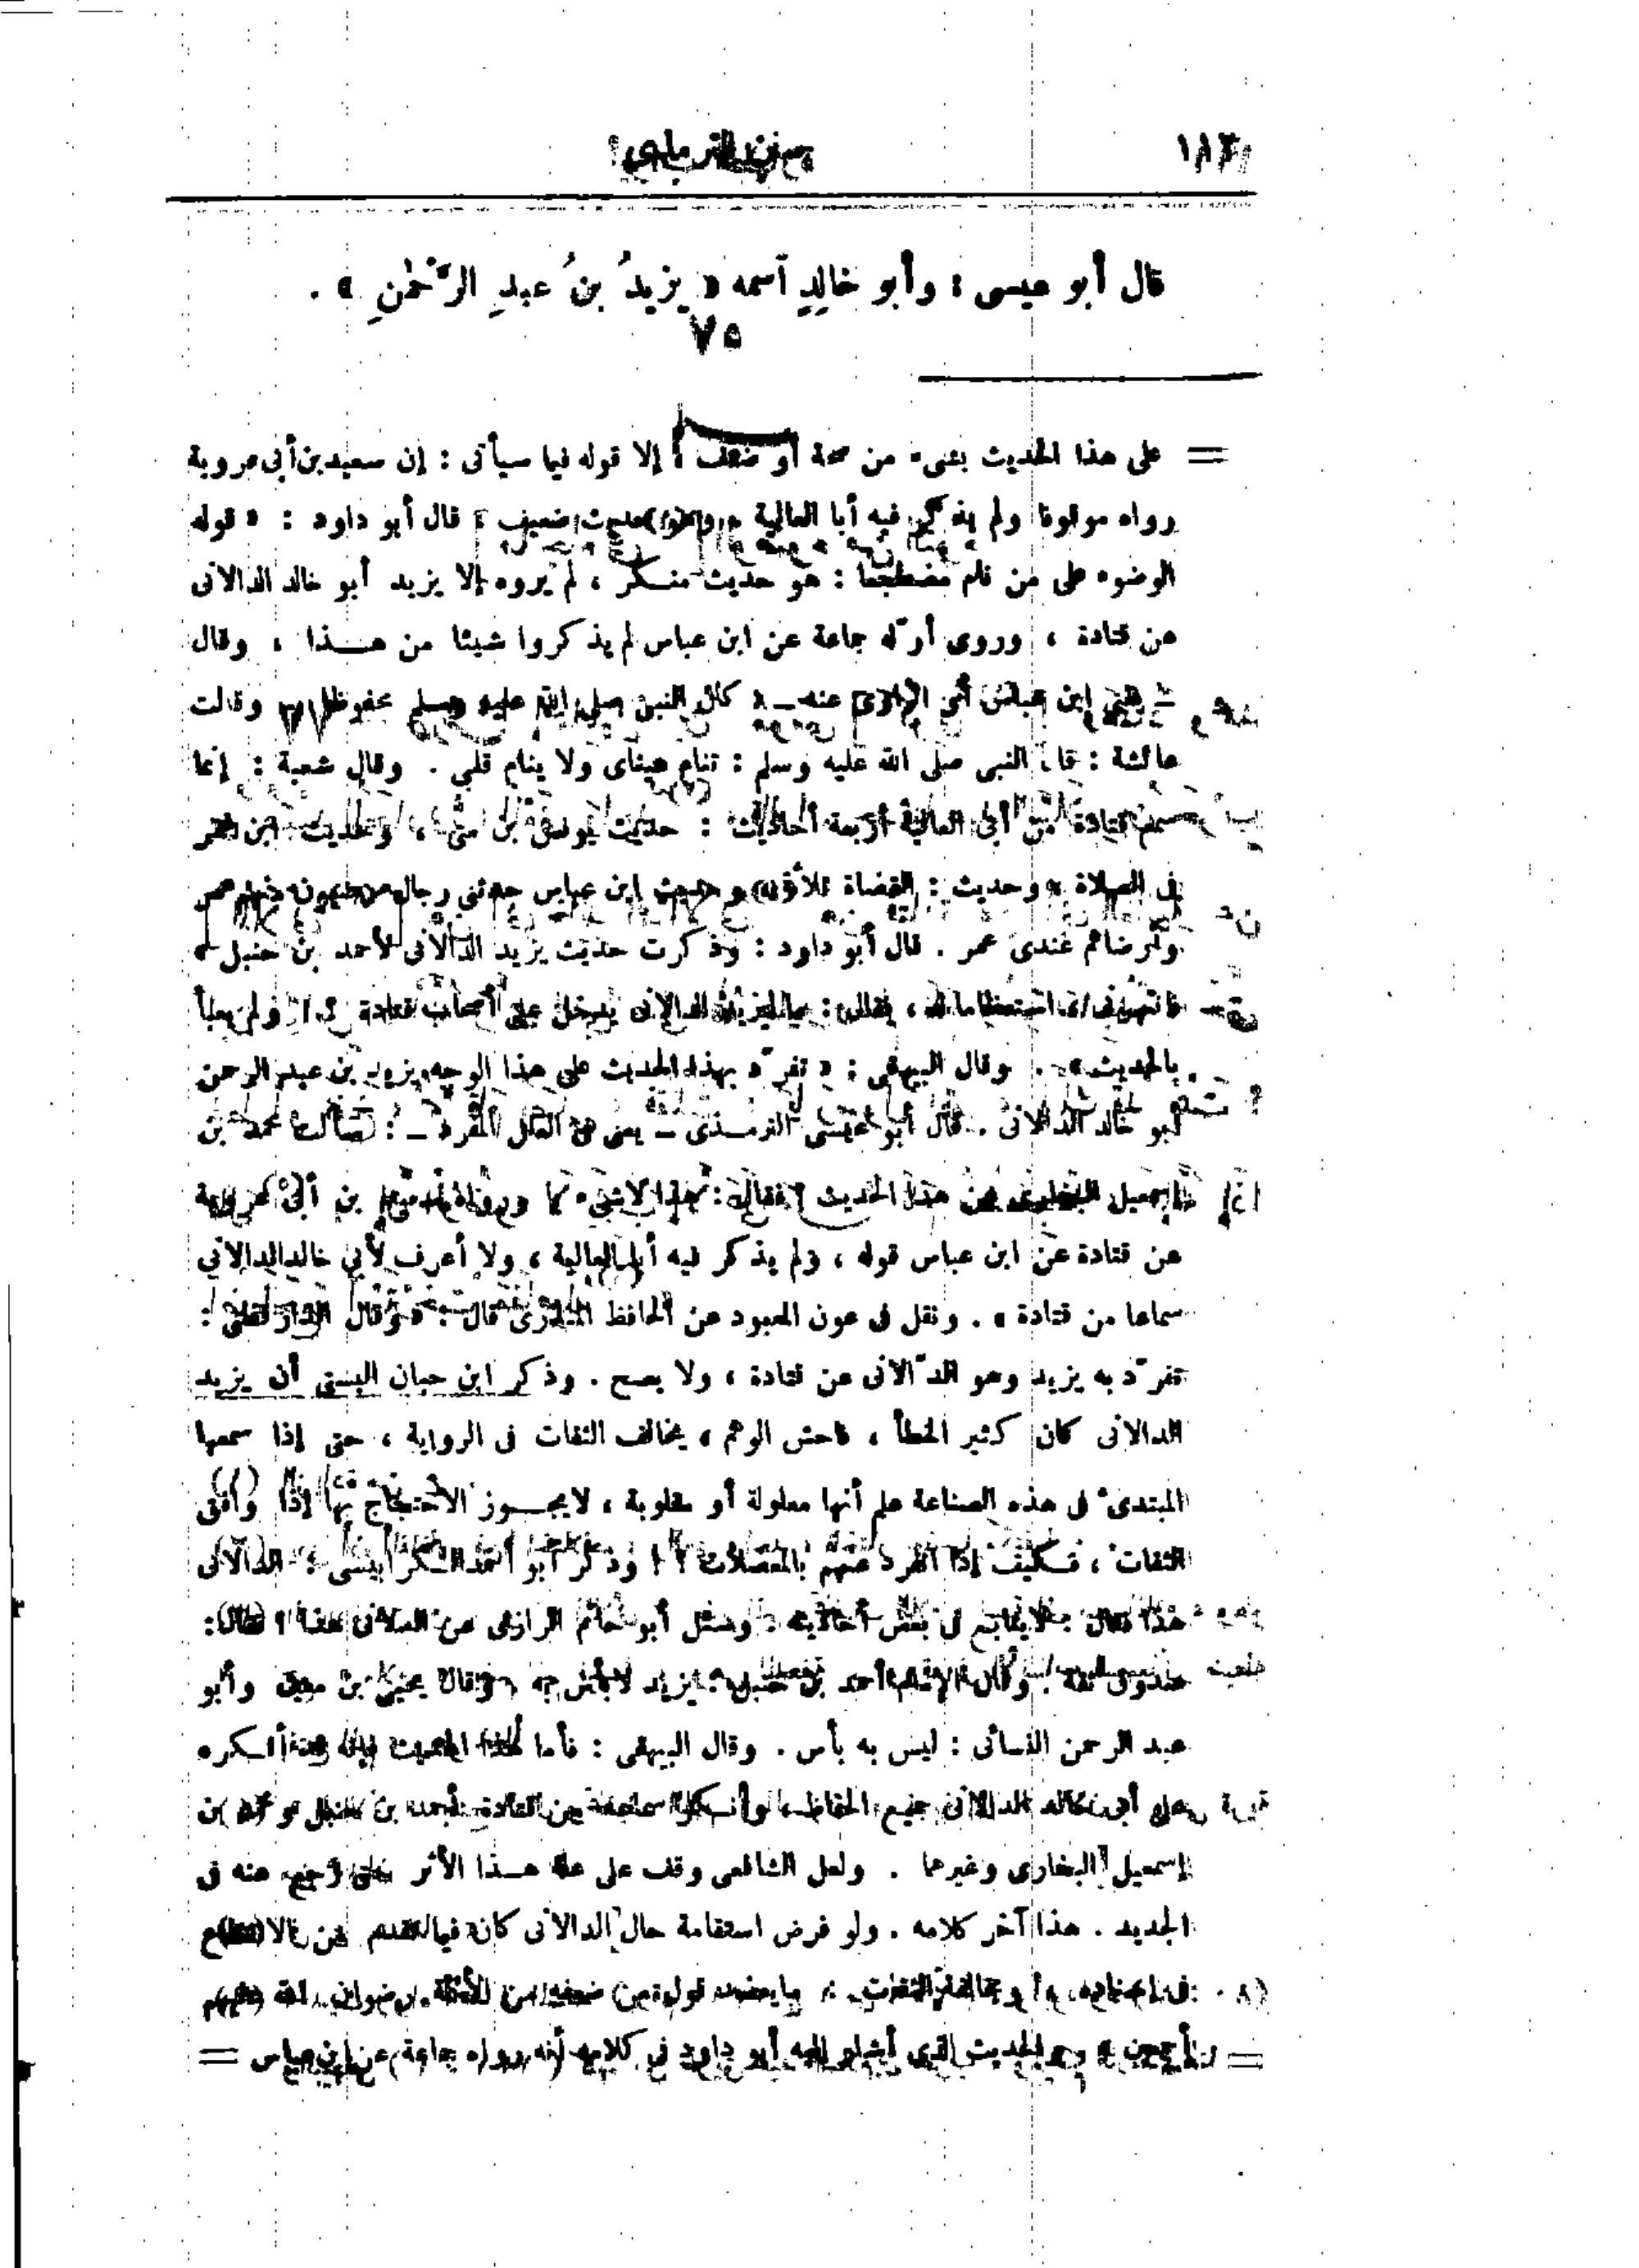 قال أبو عيسى : وأبو خالدٍ آسمه « يزيدُ بنُ عبدِ الرَّحْمٰنِ » .
٧٥
= على هذا الحديث بشىء من صحة أو ضعف ، إلا قوله فيما سيأتى : إن سعيد بن أبى عروبة
رواه موقوفا ولم يذكر فيه أبا العالية ضعيف ، قال أبو داود : « قوله
الوضوء على من نام مضطجعا : هو حديث منكر ، لم يروه إلا يزيد أبو خالد الدالانى
عن قتادة ، وروى أوّله جماعة عن ابن عباس لم يذكروا شيئا من هــذا ، وقال
ابن عباس عنه ــ كان النبى صلى الله عليه وسلم محفوظا وقالت
عائشة : قال النبى صلى الله عليه وسلم : تنام عيناى ولا ينام قلبي . وقال شعبة : إنما
سمع قتادة من أبى العالية أربعة أحاديث : حديث يونس بن متى ، وحديث ابن عمر
فى الصلاة ، وحديث : القضاة ثلاثة ، وحديث ابن عباس حدثنى رجال مرضيون منهم عمر
وأرضاهم عندى عمر . قال أبو داود : وذكرت حديث يزيد الدالانى لأحمد بن حنبل ،
فانتهرنى استعظاما له ، فقال : ما ليزيد الدالانى يدخل على أصحاب قتادة ؟ ! ولم يعبأ
بالحديث » . وقال البيهقى : « تفرّد بهذا الحديث على هذا الوجه يزيد بن عبد الرحمن
أبو خالد الدالانى . قال أبو عيسى الترمــذى ــ يعنى فى العلل المفرد ــ : سألت محمد بن
إسمعيل البخارى عن هذا الحديث ؟ فقال : هذا لا شىء
عن قتادة عن ابن عباس قوله ، ولم يذكر فيه أبا العالية ، ولا أعرف لأبى خالد الدالانى
سماعا من قتادة » . ونقل فى عون المعبود عن الحافظ المنذرى قال : « وقال الدارقطنى :
تفرّد به يزيد وهو الدّالانى عن قتادة ، ولا يصح . وذكر ابن حبان البستى أن يزيد
الدالانى كان كثير الخطأ ، فاحش الوهم ، يخالف الثقات فى الرواية ، حتى إذا سمعها
المبتدىء فى هذه الصناعة علم أنها معلولة أو مقلوبة ، لايجــوز الاحتجاج بها إذا وافق
الثقات ، فــكيف إذا انفرد عنهم بالمعضلات ؟ ! وذكر أبو أحمد الكرابيسى : الدالانى
هذا فقال : لا يتابع فى بعض أحاديثه . وسئل أبو حاتم الرازى عن الدالانى هذا ؟ فقال :
صدوق ثقة . وقال الإمام أحمد بن حنبل : يزيد لا بأس به ، وقال يحيى بن معين وأبو
عبد الرحمن النسائى : ليس به بأس . وقال البيهقى : فأما هذا الحديث فإنه قد أنــكره
على أبى خالد الدالانى جميع الحفاظ ، وأنــكر سماعه من قتادة أحمد بن حنبل ومحمد بن
إسمعيل البخارى وغيرهما . ولعل الشافعى وقف على علة هــذا الأثر حتى رجع عنه فى
الجديد . هذا آخر كلامه . ولو فرض استقامة حال الدالانى كان فيما تقدم من الانقطاع
فى إسناده ومخالفة الثقات ما يعضد قول من ضعفه من الأئمة رضوان الله عليهم
أجمعين » . والحديث الذى أشار إليه أبو داود فى كلامه أنه رواه جماعة عن ابن عباس =